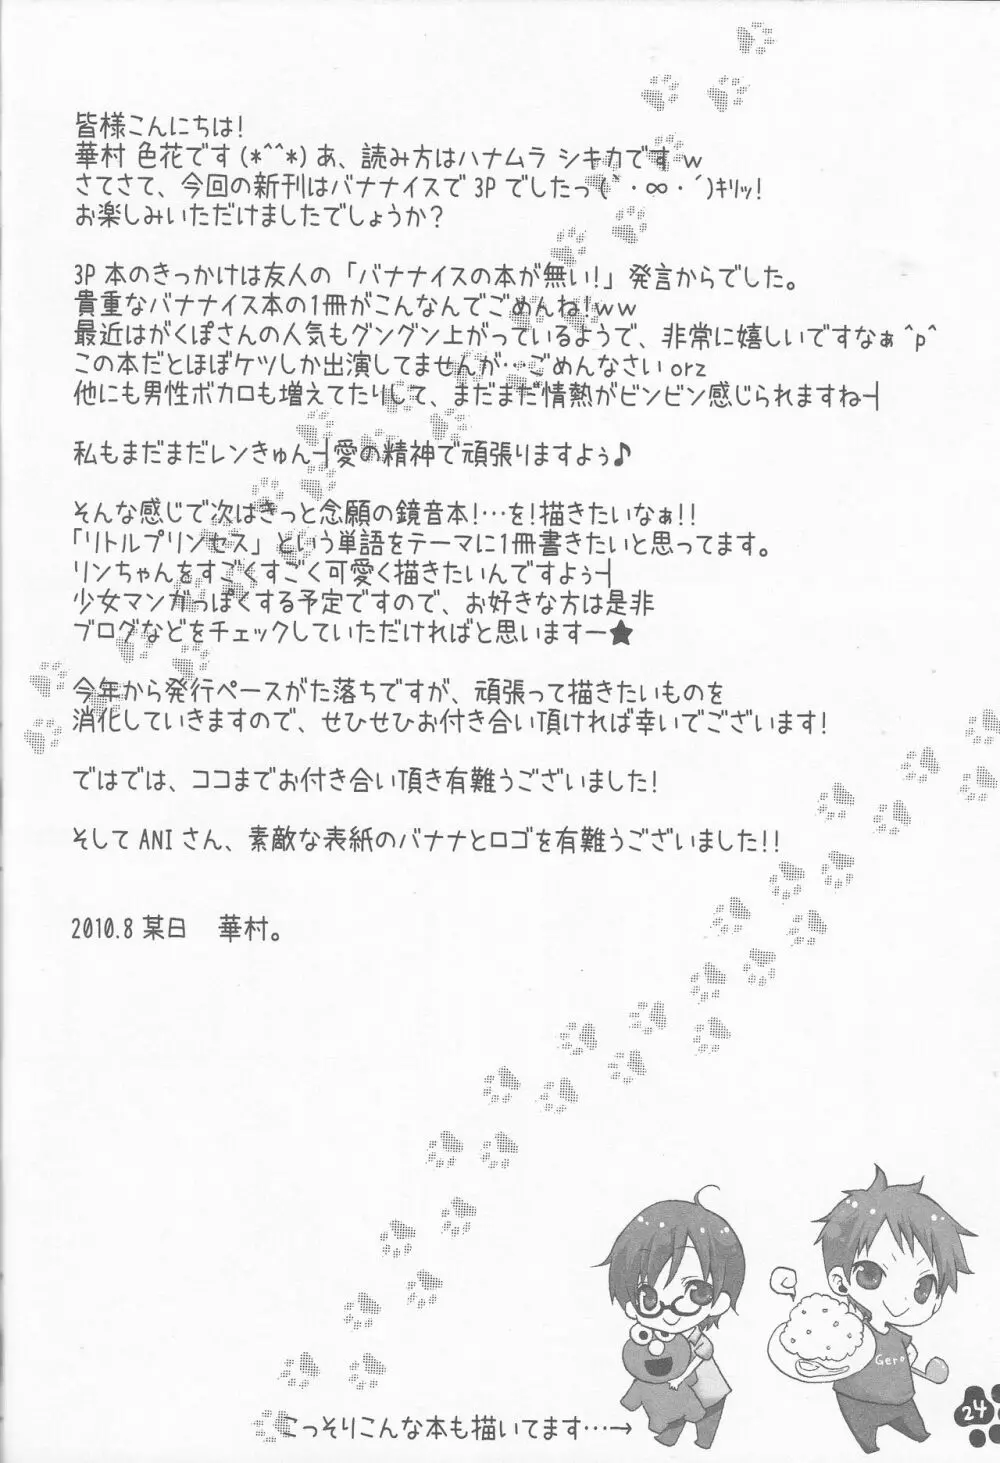 皆様こんにちは!
華村 色花です(*^^*)あ、読み方はハナムラ シキカです w
さてさて、今回の新刊はバナナイスで 3P でしたっ(｀・∞・´)ｷﾘｯ!
お楽しみいただけましたでしょうか?
3P 本のきっかけは友人の「バナナイスの本が無い!」発言からでした。
貴重なバナナイス本の1冊がこんなんでごめんね!ww
最近はがくぽさんの人気もグングン上がっているようで、非常に嬉しいですなぁ^p^
この本だとほぼケツしか出演してませんが…ごめんなさいorz
他にも男性ボカロも増えてたりして、まだまだ情熱がビンビン感じられますね┤
私もまだまだレンきゅん┤愛の精神で頑張りますよぅ♪
そんな感じで次はきっと念願の鏡音本!…を!描きたいなぁ!!
「リトルプリンセス」という単語をテーマに1冊書きたいと思ってます。
リンちゃんをすごくすごく可愛く描きたいんですよぅ┤
少女マンガっぽくする予定ですので、お好きな方は是非
ブログなどをチェックしていただければと思いますー★
今年から発行ペースがた落ちですが、頑張って描きたいものを
消化していきますので、ぜひぜひお付き合い頂ければ幸いでございます!
ではでは、ココまでお付き合い頂き有難うございました!
そして ANI さん、素敵な表紙のバナナとロゴを有難うございました!!
2010.8 某日　華村。
Gero
こっそりこんな本も描いてます…→
24